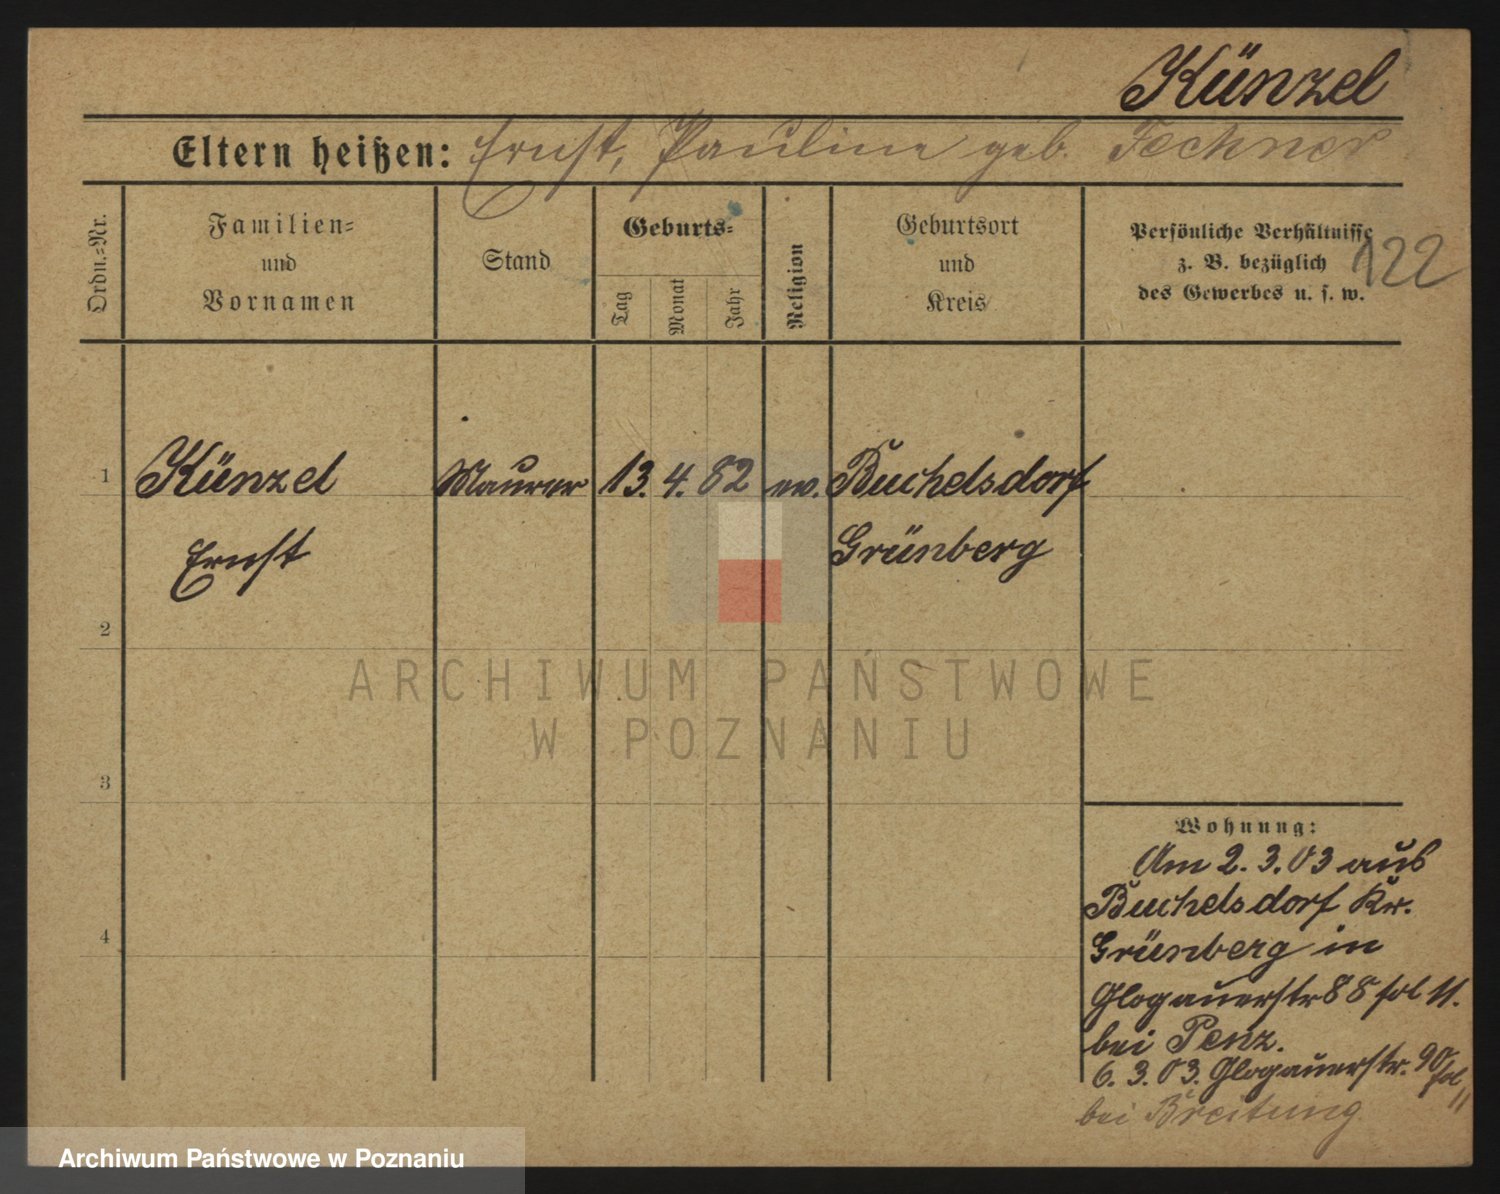 Künzel
Eltern heißen: Ernst, Pauline geb. Fechner
Ordn.-Nr.
Familien-
und
Vornamen
Stand
Geburts-
Tag
Monat
Jahr
Religion
Geburtsort
und
Kreis
Persönliche Verhältnisse
z. B. bezüglich
des Gewerbes u. s. w.
122
1 Künzel Maurer 13. 4. 82 ev. Buchelsdorf
Ernst Grünberg
2
3
4
ARCHIWUM PAŃSTWOWE
W POZNANIU
Wohnung:
Am 2. 3. 03 aus
Buchelsdorf Kr.
Grünberg in
Glogauerstr 88
bei Penz.
6. 3. 03. Glogauerstr. 90
bei Breitung
Archiwum Państwowe w Poznaniu